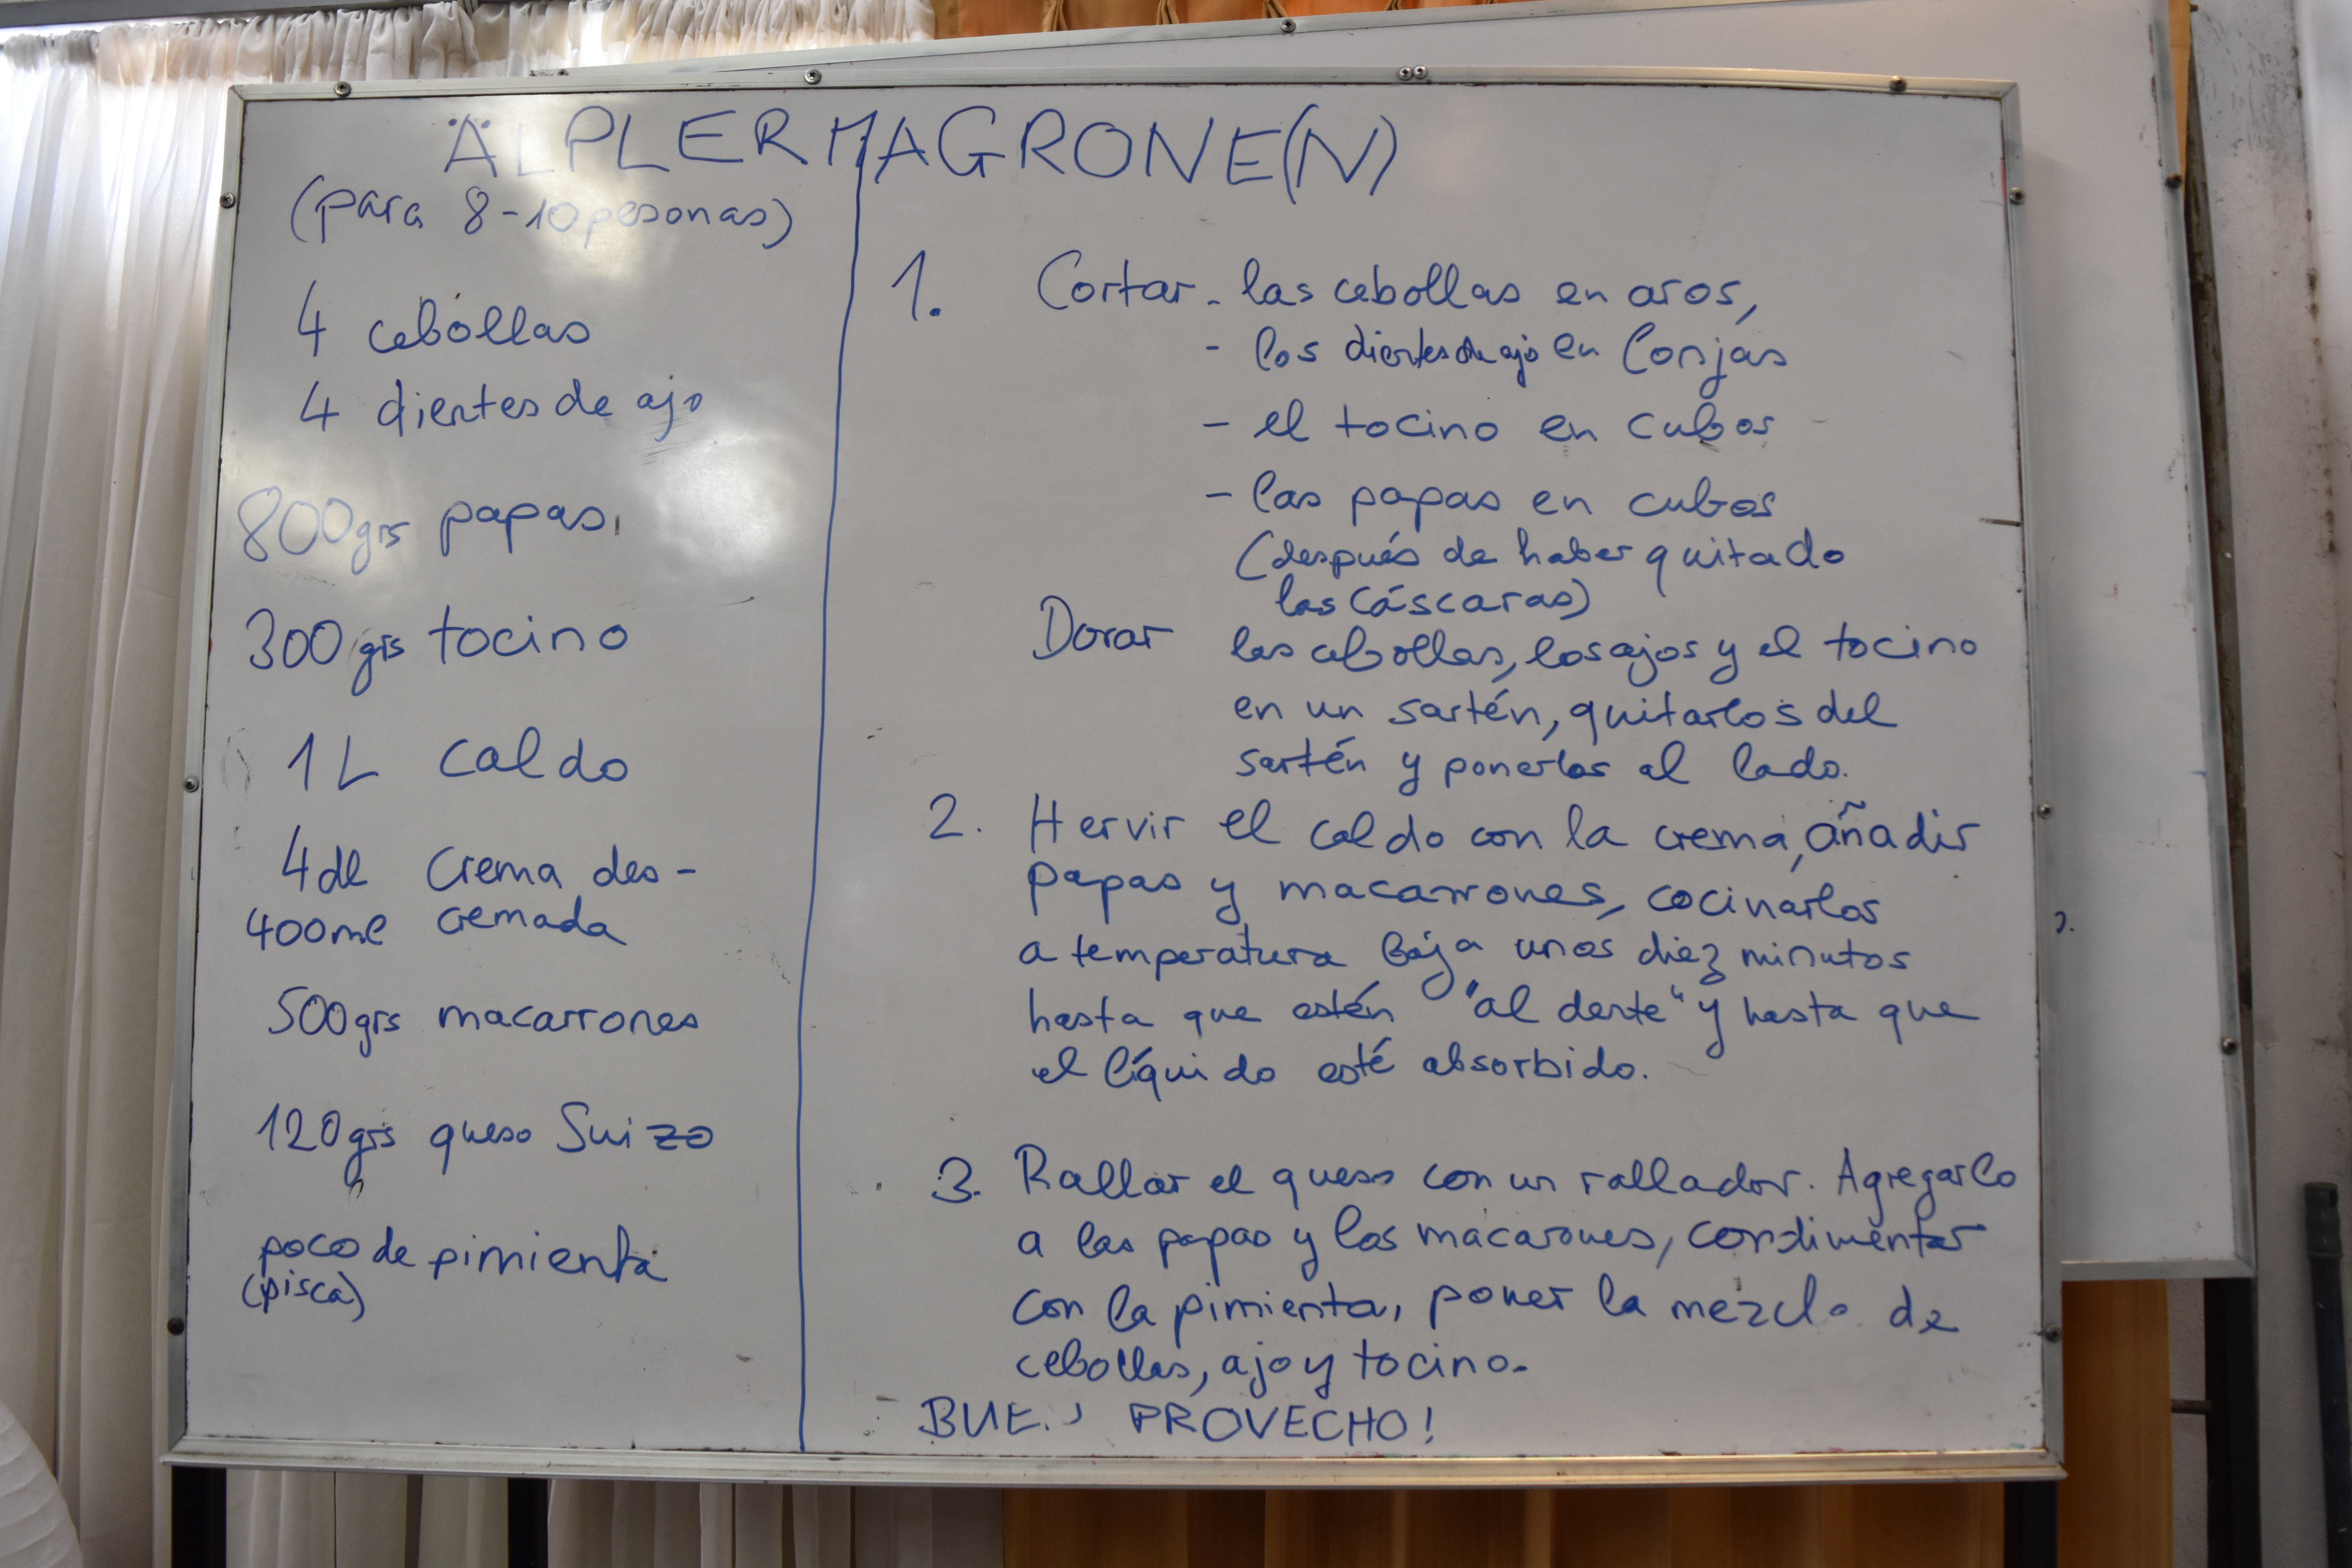 ÄLPLERMAGRONE(N)
(para 8-10 pesonas)
4 cebollas
4 dientes de ajo
800grs papas
300grs tocino
1L caldo
4dl crema des-
400ml cremada
500grs macarrones
120grs queso Suizo
poco de pimienta
(pisca)
1. Cortar - las cebollas en aros,
- los dientes de ajo en lonjas
- el tocino en cubos
- las papas en cubos
(después de haber quitado
las cáscaras)
Dorar las cebollas, los ajos y el tocino
en un sartén, quitarlos del
sartén y ponerlos al lado.
2. Hervir el caldo con la crema, añadir
papas y macarrones, cocinarlos
a temperatura baja unos diez minutos
hasta que estén "al dente" y hasta que
el líquido esté absorbido.
3. Rallar el queso con un rallador. Agregarlo
a las papas y los macarones, condimentar
con la pimienta, poner la mezcla de
cebollas, ajo y tocino.
PROVECHO!